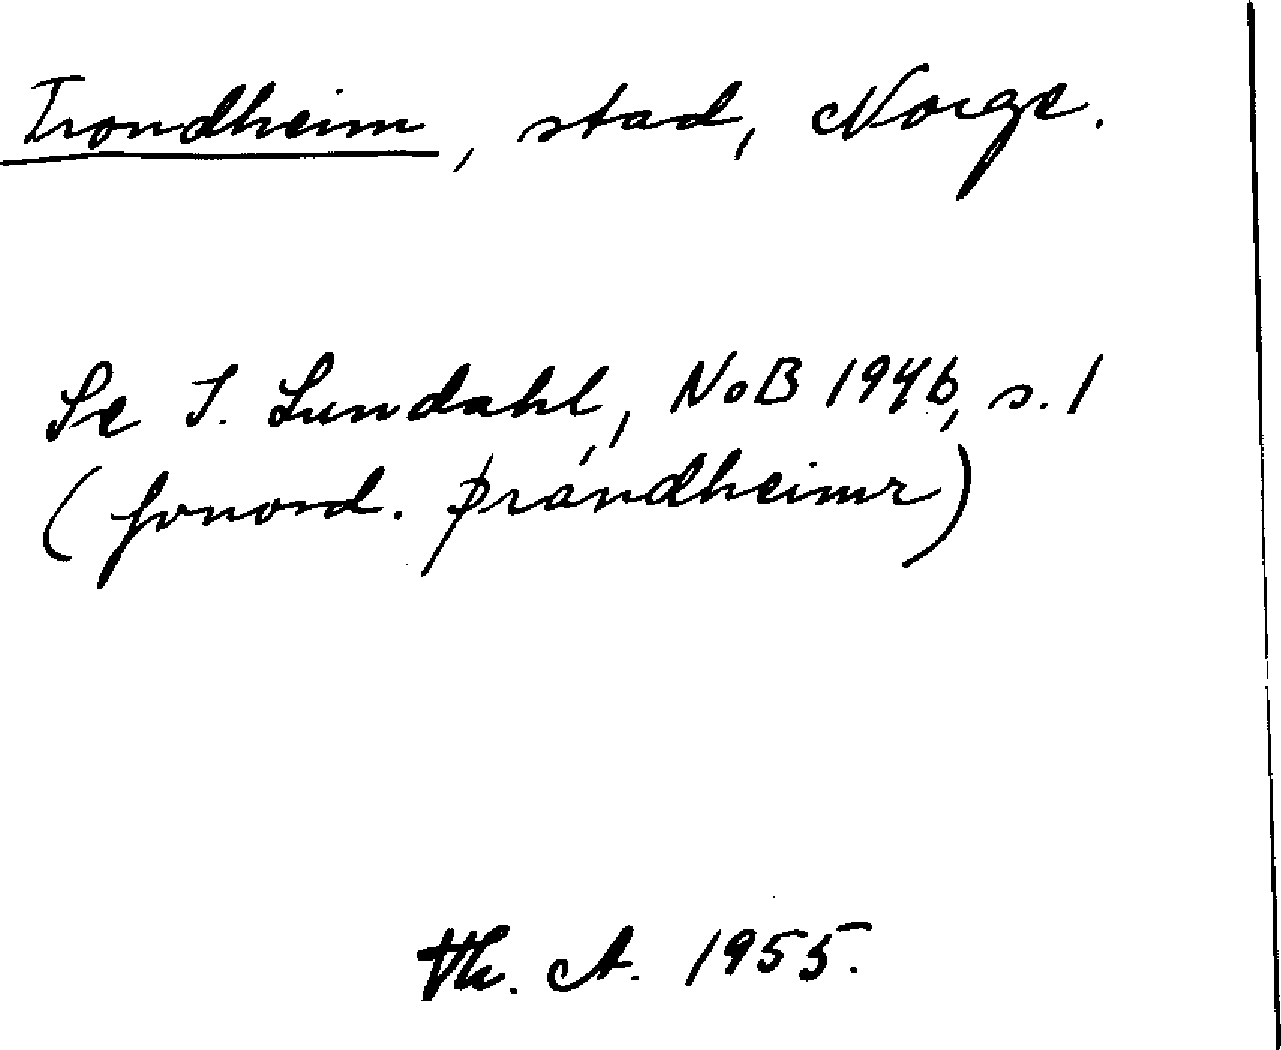 Trondheim, stad, Norge.
Se I. Lundahl, NoB 1946, s. 1
(fvnord. þrándheimr)
Th. A. 1955.